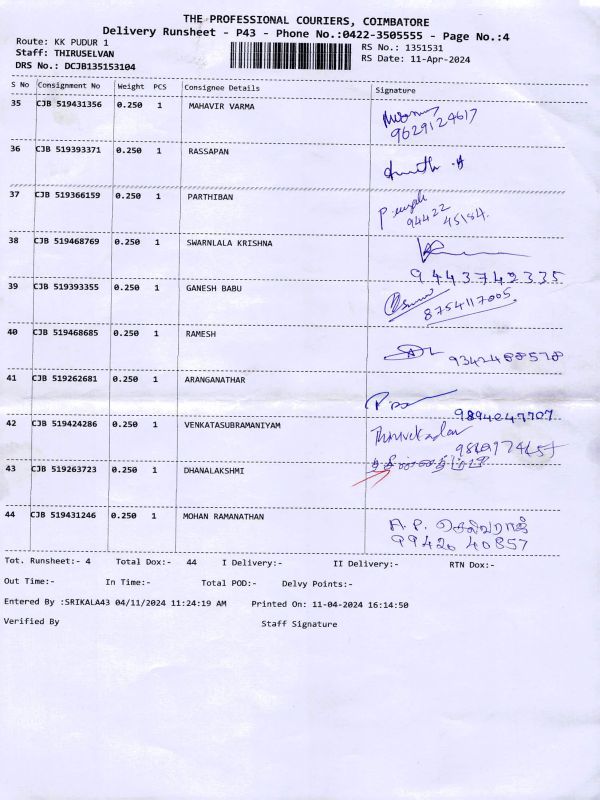 THE PROFESSIONAL COURIERS, COIMBATORE
Delivery Runsheet - P43 - Phone No.:0422-3505555 - Page No.:4
Route: KK PUDUR 1
RS No.: 1351531
Staff: THIRUSELVAN
RS Date: 11-Apr-2024
DRS No.: DCJB135153104
S No Consignment No Weight PCS Consignee Details Signature
35 CJB 519431356 0.250 1 MAHAVIR VARMA
9629124617
36 CJB 519393371 0.250 1 RASSAPAN
37 CJB 519366159 0.250 1 PARTHIBAN
94422 45184.
38 CJB 519468769 0.250 1 SWARNLALA KRISHNA
9443742335
39 CJB 519393355 0.250 1 GANESH BABU
8754117005
40 CJB 519468685 0.250 1 RAMESH
41 CJB 519262681 0.250 1 ARANGANATHAR
9894047707
42 CJB 519424286 0.250 1 VENKATASUBRAMANIYAM
43 CJB 519263723 0.250 1 DHANALAKSHMI
44 CJB 519431246 0.250 1 MOHAN RAMANATHAN
A.P. செல்வராஜ்
99426 40857
Tot. Runsheet:- 4 Total Dox:- 44 I Delivery:- II Delivery:- RTN Dox:-
Out Time:- In Time:- Total POD:- Delvy Points:-
Entered By :SRIKALA43 04/11/2024 11:24:19 AM Printed On: 11-04-2024 16:14:50
Verified By Staff Signature